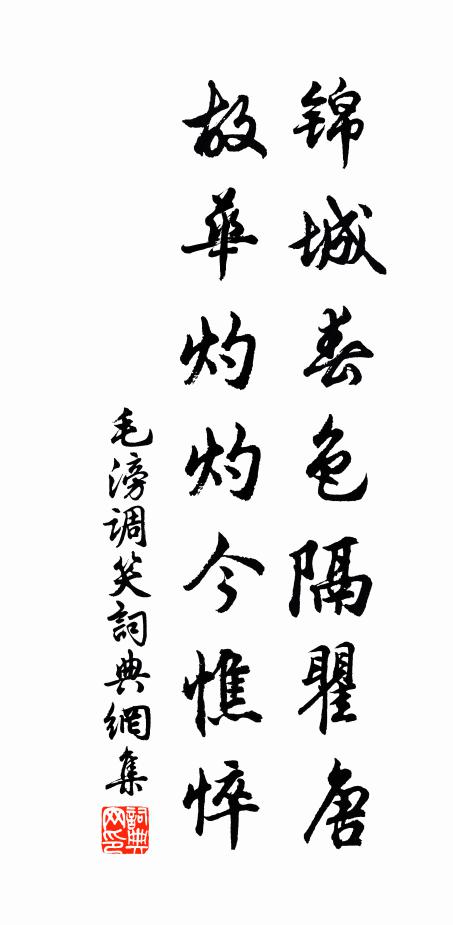 錦城春色隔瞿唐
故華灼灼今憔悴
毛滂調笑詞典網集
詞典網印